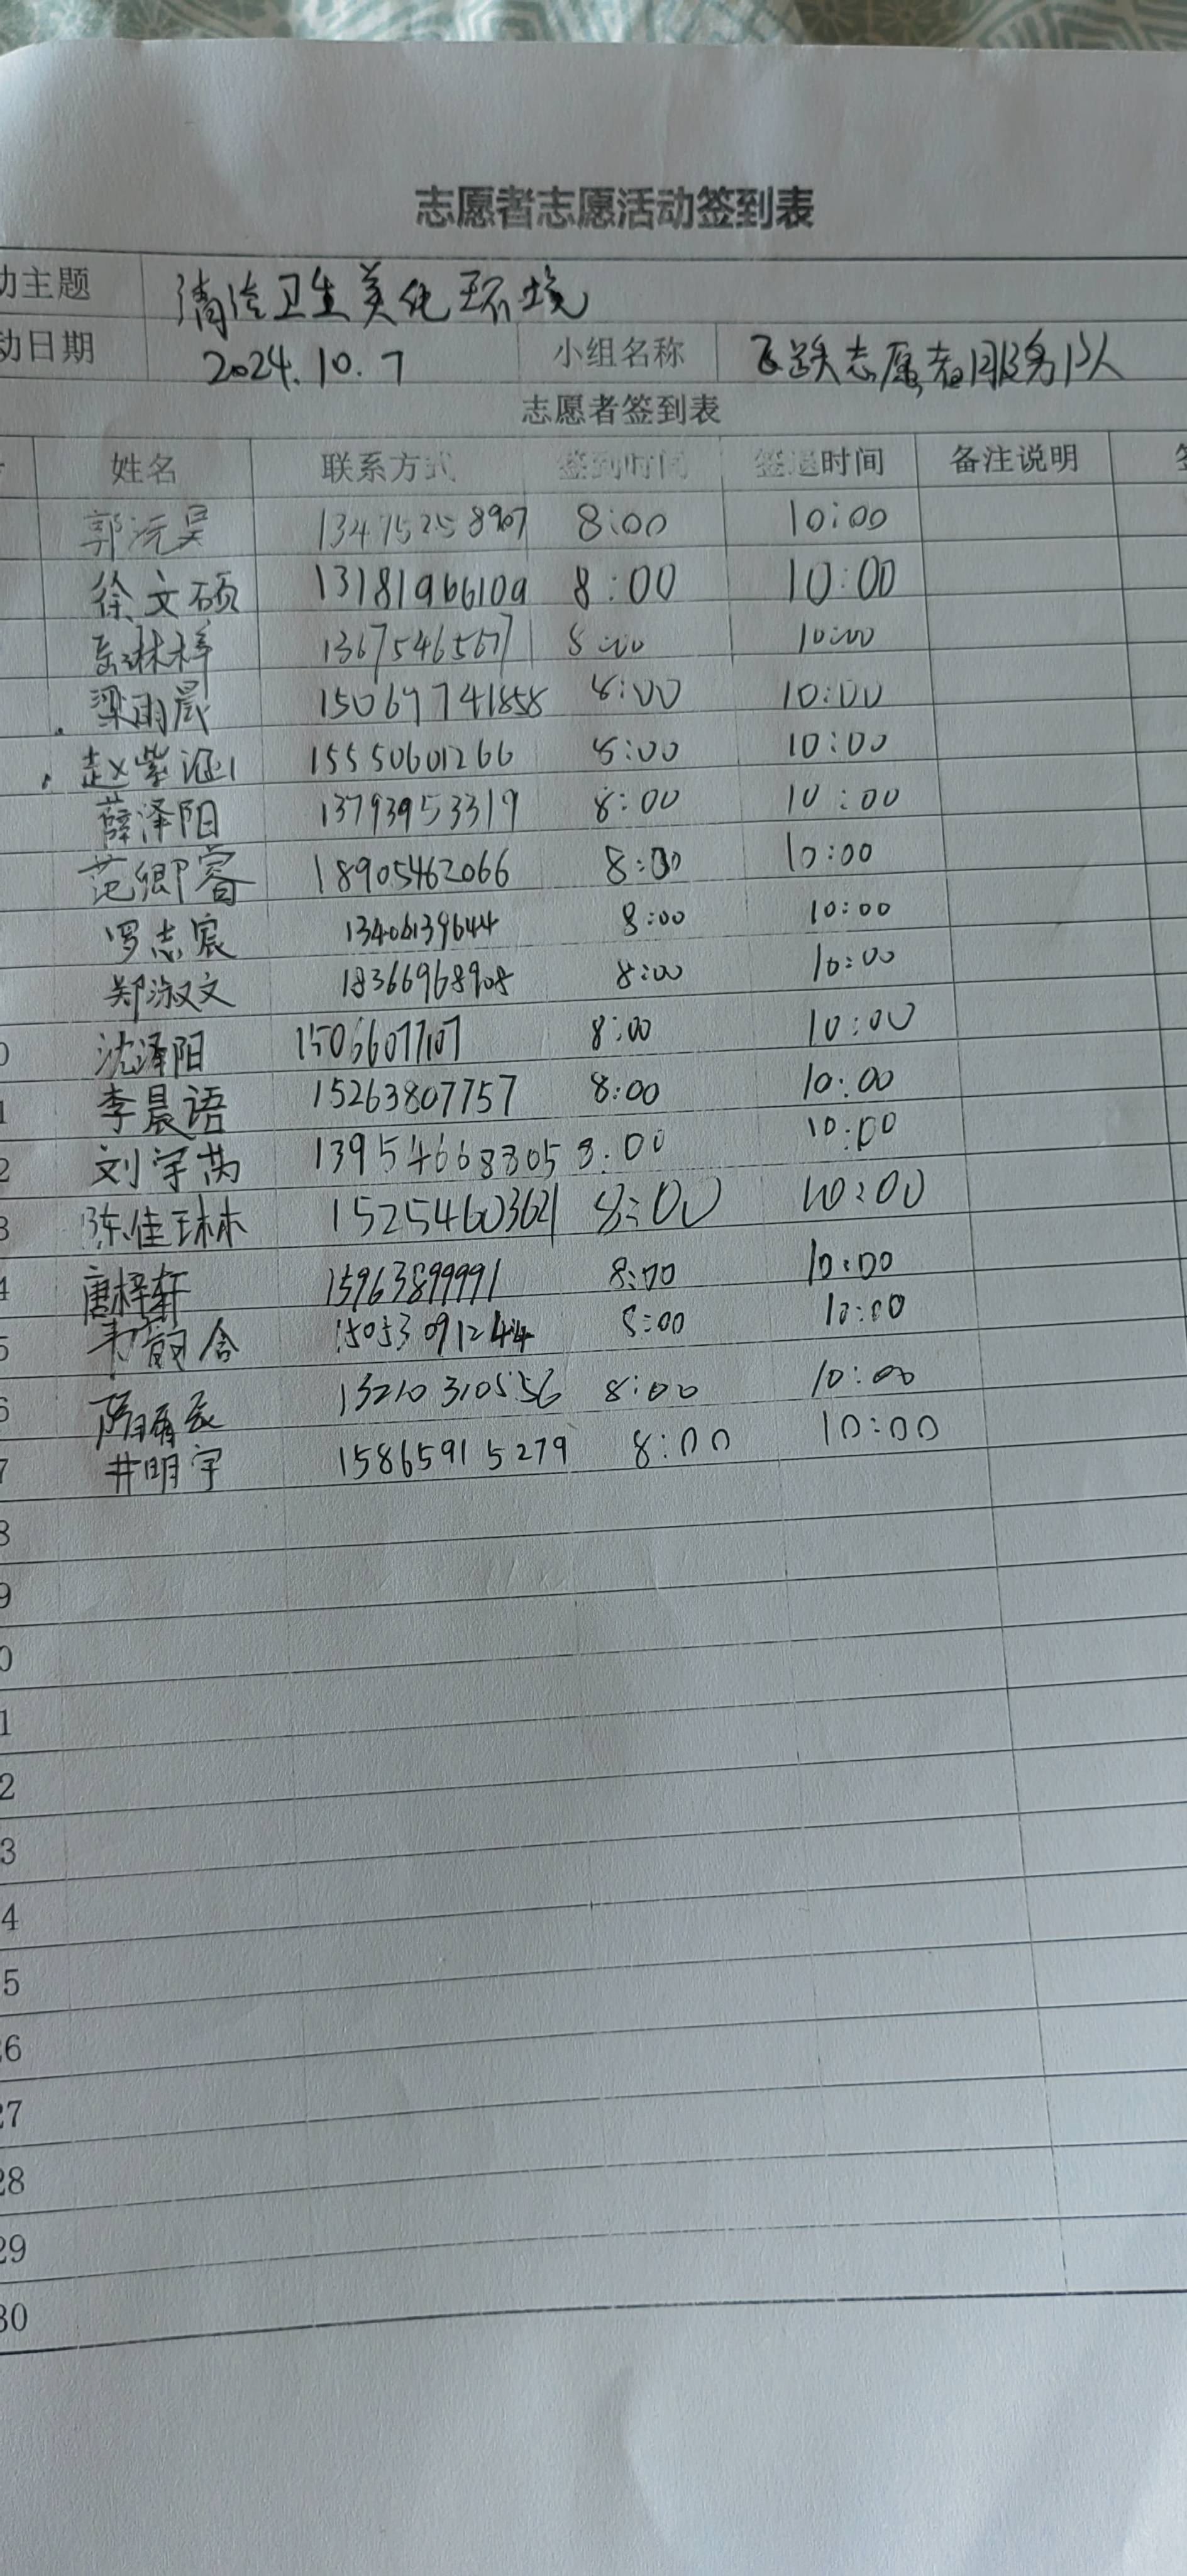 志愿者志愿活动签到表
动主题 清洁卫生美化环境
动日期 2024.10.7 小组名称 飞跃志愿者服务队
志愿者签到表
姓名 联系方式 签到时间 签退时间 备注说明
郭沅昊 13475258907 8:00 10:00
徐文硕 13181966109 8:00 10:00
岳琳梓 13675465671 8:00 10:00
梁雨晨 15069741858 8:00 10:00
赵紫涵 15550601266 8:00 10:00
薛泽阳 13793953319 8:00 10:00
范卿睿 18905462066 8:00 10:00
罗志宸 13406139644 8:00 10:00
郑淑文 18366968908 8:00 10:00
0 沈泽阳 15066077107 8:00 10:00
1 李晨语 15263807757 8:00 10:00
2 刘宇芮 13954668305 8:00 10:00
3 陈佳琳 15254603621 8:00 10:00
4 唐梓轩 15963899991 8:00 10:00
5 韦 15053091244 8:00 10:00
6 隋 13210310556 8:00 10:00
7 井明宇 15865915279 8:00 10:00
8
9
0
1
2
3
4
5
26
27
28
29
30